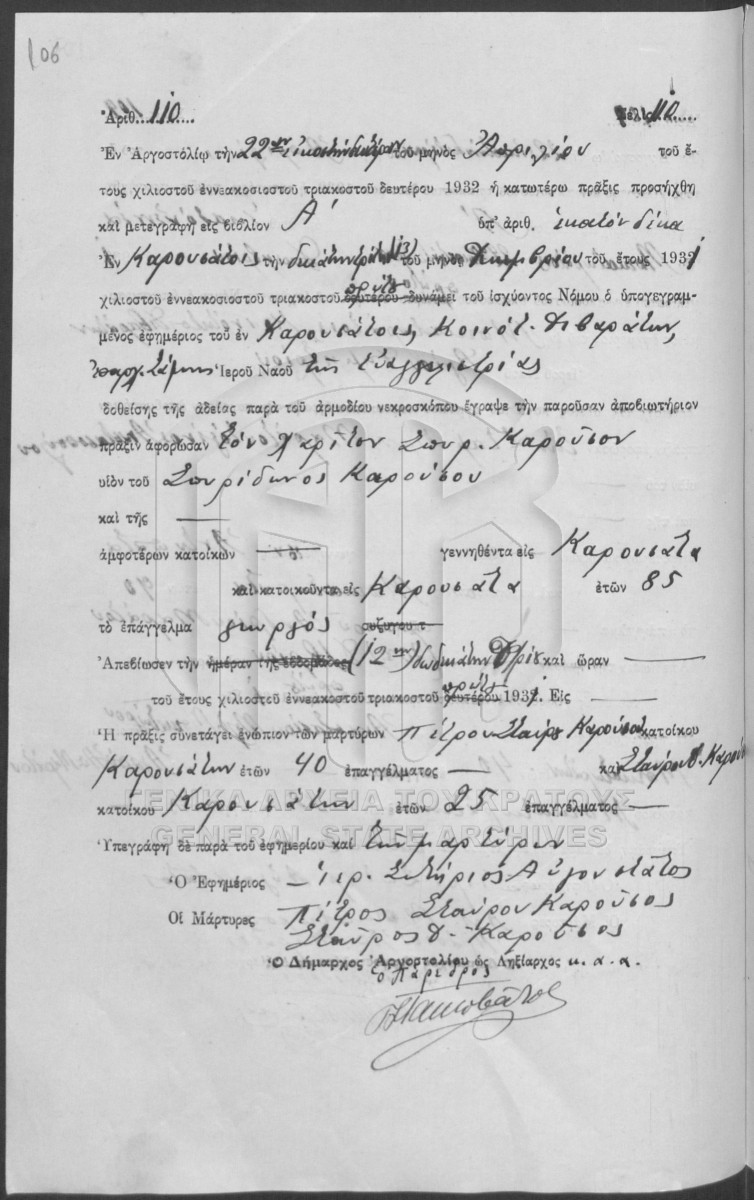 106
Ἀριθ. 110 Σελὶς 110
Ἐν Ἀργοστολίῳ τὴν 22αν εἰκοστὴν δευτέραν τοῦ μηνὸς Ἀπριλίου τοῦ ἔ-
τους χιλιοστοῦ ἐννεακοσιοστοῦ τριακοστοῦ δευτέρου 1932 ἡ κατωτέρω πρᾶξις προσήχθη
καὶ μετεγράφη εἰς βιβλίον Α΄ ὑπ' ἀριθ. ἑκατὸν δέκα
Ἐν Καρουσάτοις τὴν δεκάτην τρίτην (13) τοῦ μηνὸς Δεκεμβρίου τοῦ ἔτους 1931
πρώτου
χιλιοστοῦ ἐννεακοσιοστοῦ τριακοστοῦ δευτέρου δυνάμει τοῦ ἰσχύοντος Νόμου ὁ ὑπογεγραμ-
μένος ἐφημέριος τοῦ ἐν Καρουσάτοις, Κοινότ. Διβαράτων,
ἐπαρχ. Σάμης Ἱεροῦ Ναοῦ τῆς Εὐαγγελιστρίας
δοθείσης τῆς ἀδείας παρὰ τοῦ ἁρμοδίου νεκροσκόπου ἔγραψε τὴν παροῦσαν ἀποβιωτήριον
πρᾶξιν ἀφορῶσαν τὸν Χαρῖτον Σπυρ. Καροῦσον
υἱὸν τοῦ Σπυρίδωνος Καρούσου
καὶ τῆς
ἀμφοτέρων κατοίκων γεννηθέντα εἰς Καρουσάτα
καὶ κατοικοῦντα εἰς Καρουσάτα ἐτῶν 85
τὸ ἐπάγγελμα γεωργός συζύγου τ
Ἀπεβίωσεν τὴν ἡμέραν τῆς ἑβδομάδος (12ην) δωδεκάτην καὶ ὥραν
πρώτου
τοῦ ἔτους χιλιοστοῦ ἐννεακοσιοστοῦ τριακοστοῦ δευτέρου 1931. Εἰς
Ἡ πρᾶξις συνετάγει ἐνώπιον τῶν μαρτύρων Πέτρου Σταύρου Καρούσου κατοίκου
Καρουσάτων ἐτῶν 40 ἐπαγγέλματος καὶ Σταύρου Δ. Καρούσου
κατοίκου Καρουσάτων ἐτῶν 25 ἐπαγγέλματος
ΓΕΝΙΚΑ ΑΡΧΕΙΑ ΤΟΥ ΚΡΑΤΟΥΣ
GENERAL STATE ARCHIVES
Ὑπεγράφη δὲ παρὰ τοῦ ἐφημερίου καὶ τῶν μαρτύρων
Ὁ Ἐφημέριος Ἱερ. Σωτήριος Αὐγουστᾶτος
Οἱ Μάρτυρες Πέτρος Σταύρου Καροῦσος
Σταῦρος Δ. Καροῦσος
Ὁ Δήμαρχος Ἀργορτολίου ὡς Ληξίαρχος κ. α. α.
ὁ Πάρεδρος